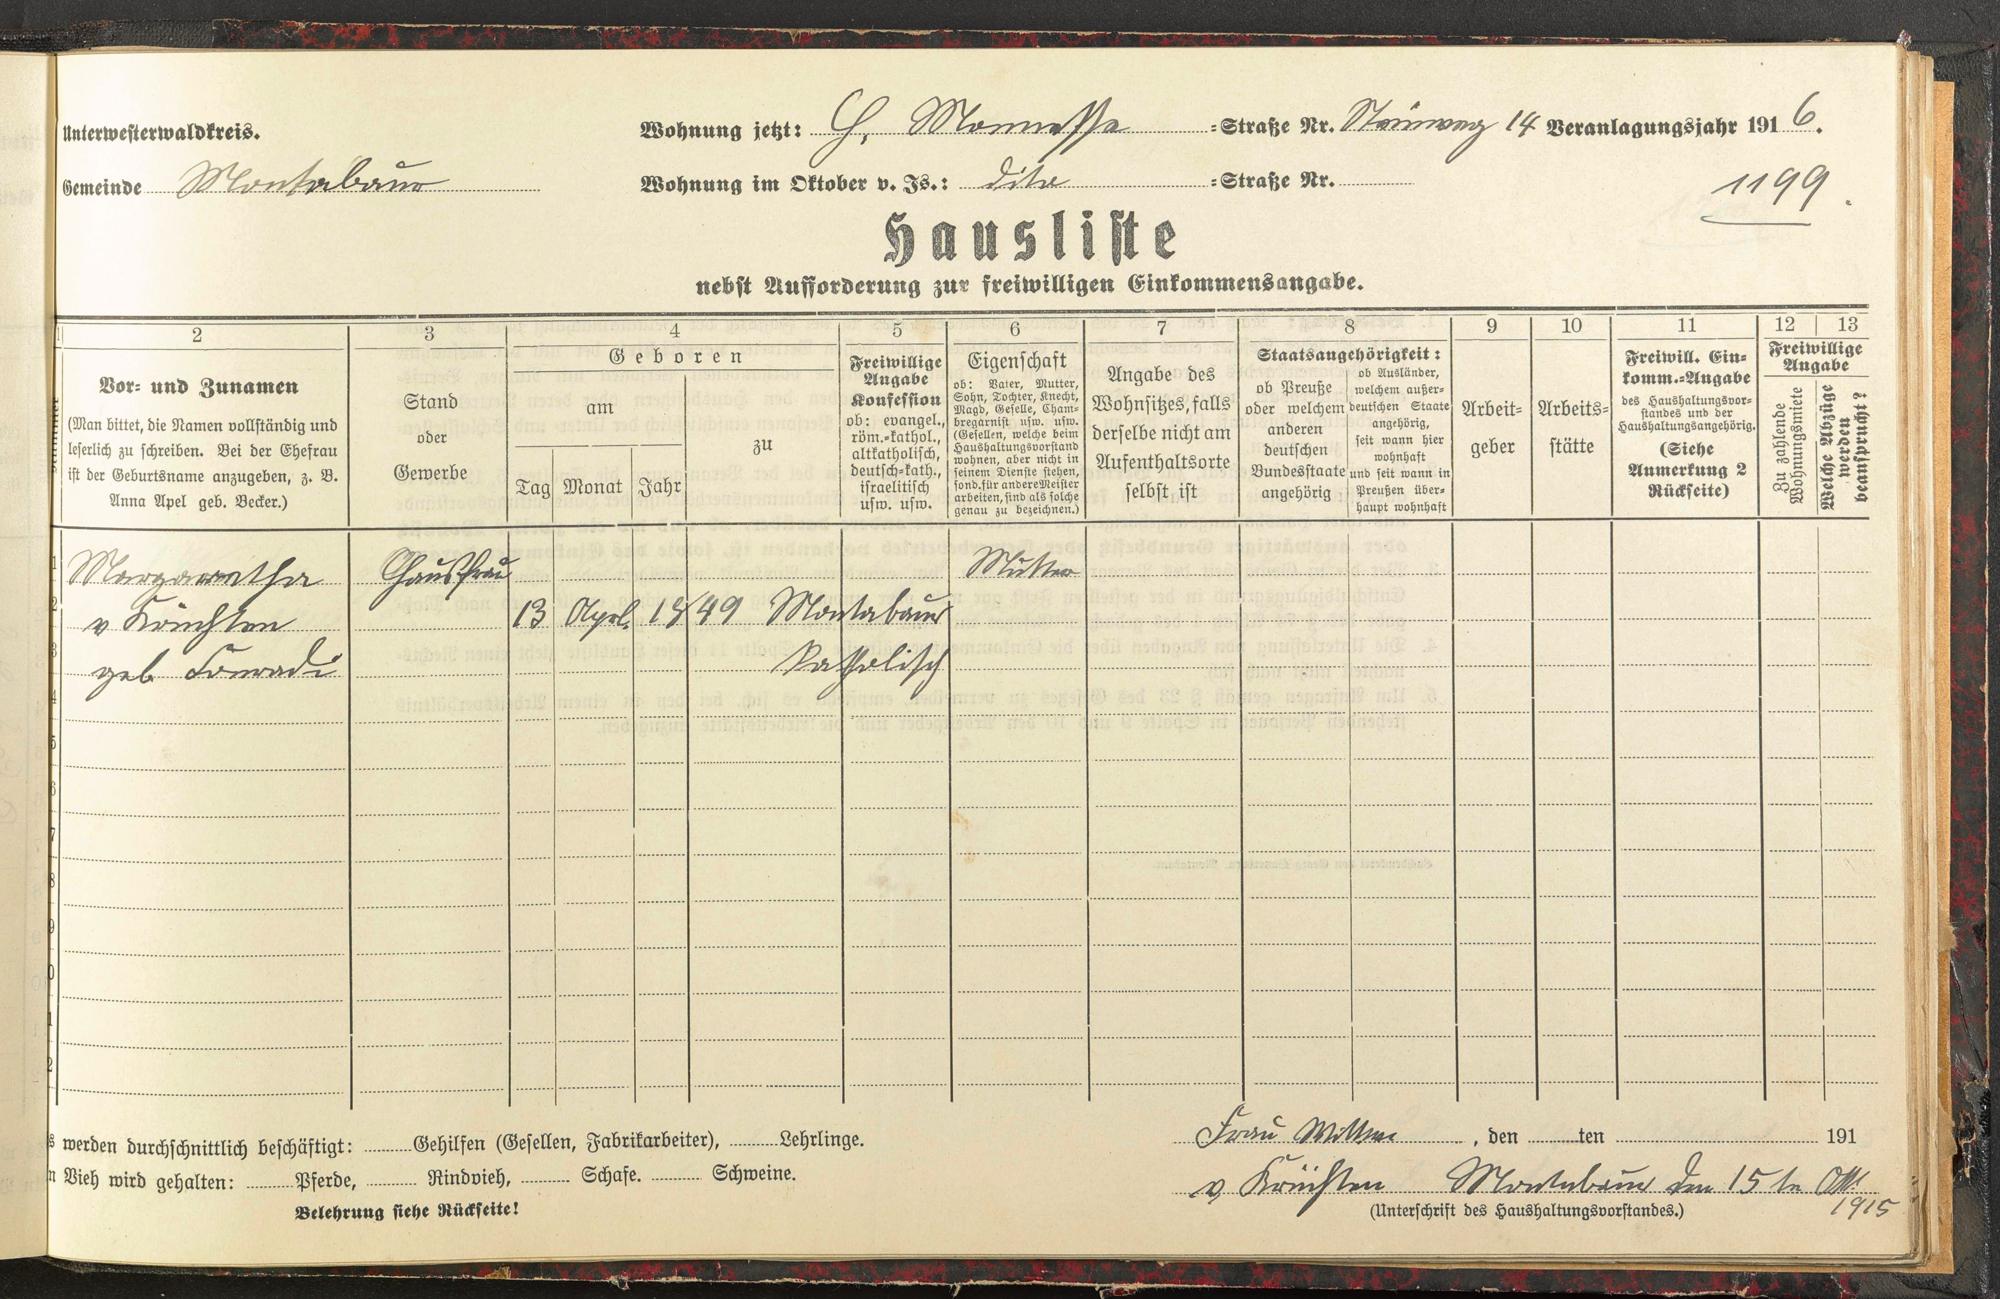 Unterwesterwaldkreis.
Wohnung jetzt: H. Mannesse =Straße Nr. Steinweg 14 Veranlagungsjahr 1916.
Gemeinde Montabaur
Wohnung im Oktober v. Js.: dito =Straße Nr.
1199.
Hausliste
nebst Aufforderung zur freiwilligen Einkommensangabe.
1 2 3 4 5 6 7 8 9 10 11 12 13
Vor- und Zunamen
(Man bittet, die Namen vollständig und
leserlich zu schreiben. Bei der Ehefrau
ist der Geburtsname anzugeben, z. B.
Anna Apel geb. Becker.)
Stand
oder
Gewerbe
Geboren
am
Tag Monat Jahr
zu
Freiwillige
Angabe
Konfession
ob: evangel.,
röm.-kathol.,
altkatholisch,
deutsch-kath.,
israelitisch
usw. usw.
Eigenschaft
ob: Vater, Mutter,
Sohn, Tochter, Knecht,
Magd, Geselle, Cham-
bregarnist usw. usw.
(Gesellen, welche beim
Haushaltungsvorstand
wohnen, aber nicht in
seinem Dienste stehen,
sond. für andere Meister
arbeiten, sind als solche
genau zu bezeichnen.)
Angabe des
Wohnsitzes, falls
derselbe nicht am
Aufenthaltsorte
selbst ist
Staatsangehörigkeit:
ob Preuße
oder welchem
anderen
deutschen
Bundesstaate
angehörig
ob Ausländer,
welchem außer-
deutschen Staate
angehörig,
seit wann hier
wohnhaft
und seit wann in
Preußen über-
haupt wohnhaft
Arbeit-
geber
Arbeits-
stätte
Freiwill. Ein-
komm.-Angabe
des Haushaltungsvor-
standes und der
Haushaltungsangehörig.
(Siehe
Anmerkung 2
Rückseite)
Freiwillige
Angabe
Zu zahlende
Wohnungsmiete
Welche Abzüge
werden
beansprucht?
1 Margaretha Hausfrau Mutter
2 v Krüchten 13 April 1849 Montabaur
3 geb Conradi Katholisch
4
5
6
7
8
9
0
1
2
s werden durchschnittlich beschäftigt: Gehilfen (Gesellen, Fabrikarbeiter), Lehrlinge.
n Vieh wird gehalten: Pferde, Rindvieh, Schafe. Schweine.
Belehrung siehe Rückseite!
Frau Wittwe, den ten 191
v Krüchten Montabaur den 15 te Okt
1915
(Unterschrift des Haushaltungsvorstandes.)